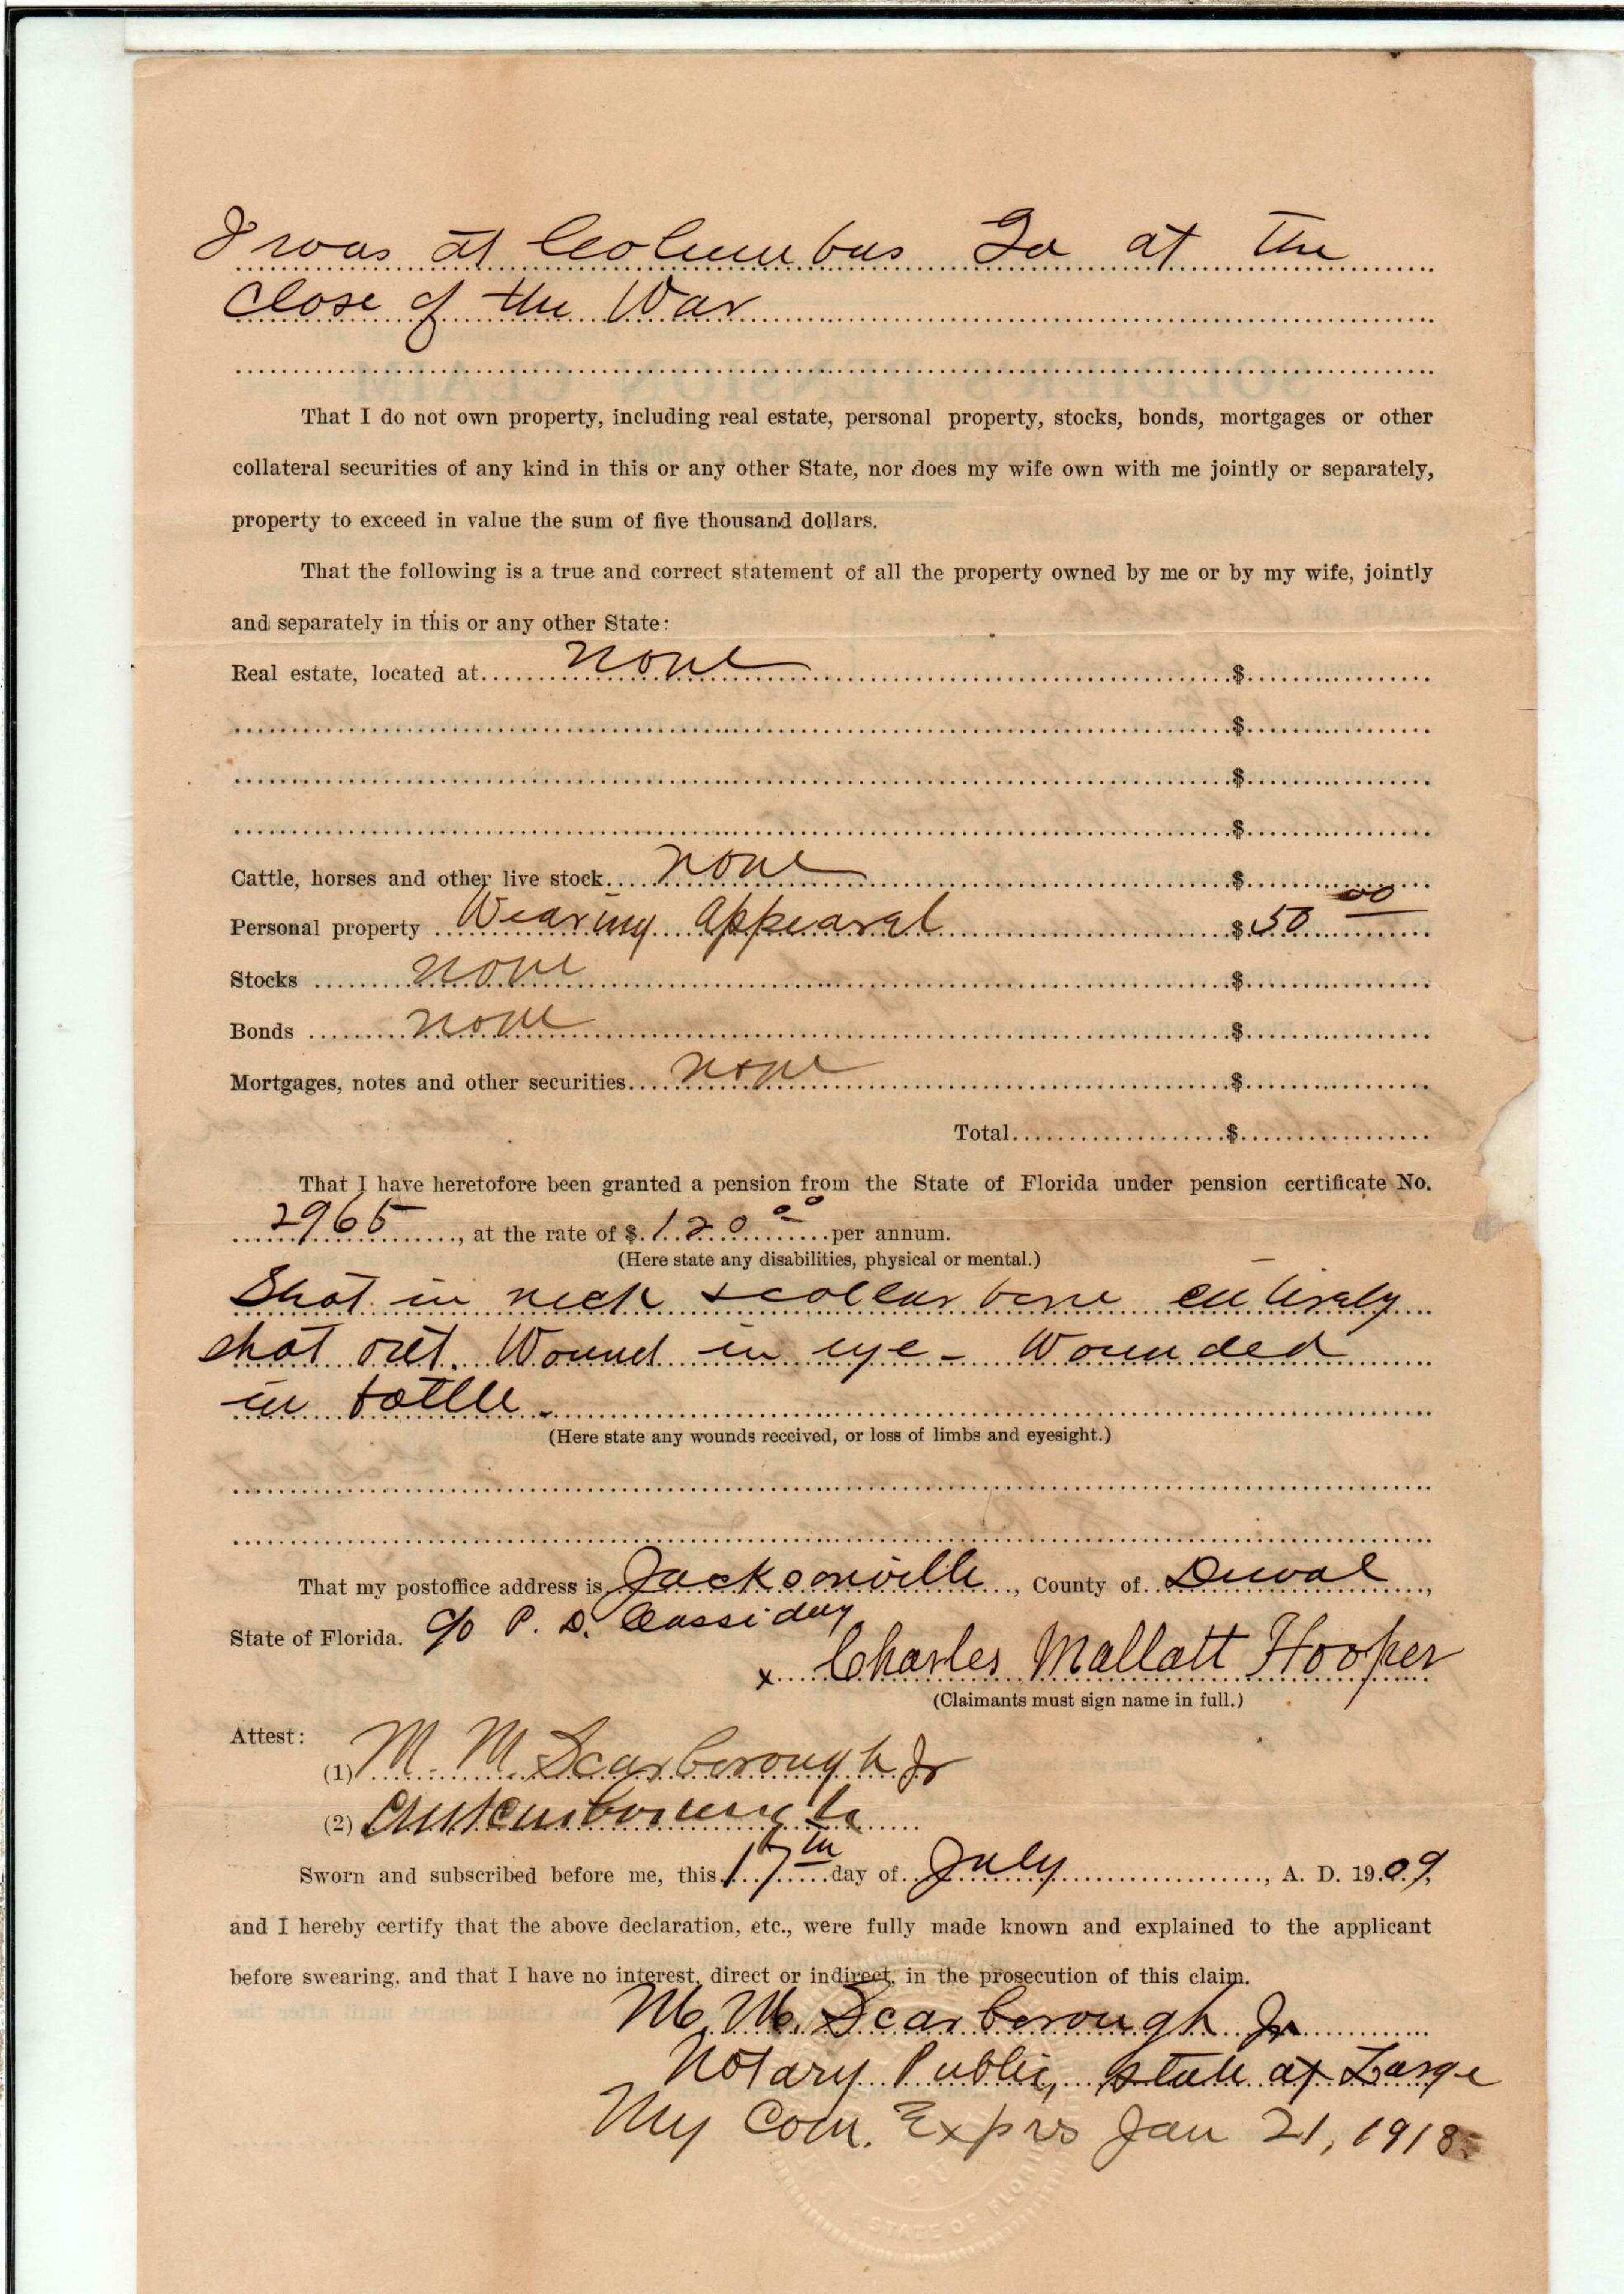 I was at Columbus Ga at the
Close of the War
That I do not own property, including real estate, personal property, stocks, bonds, mortgages or other
collateral securities of any kind in this or any other State, nor does my wife own with me jointly or separately,
property to exceed in value the sum of five thousand dollars.
That the following is a true and correct statement of all the property owned by me or by my wife, jointly
and separately in this or any other State:
Real estate, located at none $
$
$
$
Cattle, horses and other live stock none $
Personal property Wearing Appearal $50 00
Stocks none $
Bonds none $
Mortgages, notes and other securities none $
Total $
That I have heretofore been granted a pension from the State of Florida under pension certificate No.
2965, at the rate of $120 00 per annum.
(Here state any disabilities, physical or mental.)
Shot in neck & collar bone entirely
shot out. Wound in eye - Wounded
in battle -
(Here state any wounds received, or loss of limbs and eyesight.)
That my postoffice address is Jacksonville, County of Duval,
State of Florida. c/o P. D. Cassiday
x Charles Mallatt Hooper
(Claimants must sign name in full.)
Attest:
(1) M. M. Scarborough Jr
(2)
Sworn and subscribed before me, this 17th day of July, A. D. 1909,
and I hereby certify that the above declaration, etc., were fully made known and explained to the applicant
before swearing, and that I have no interest, direct or indirect, in the prosecution of this claim.
M. M. Scarborough Jr
Notary Public, State at Large
My Com. Exprs Jan 21, 1913
STATE OF FLORIDA